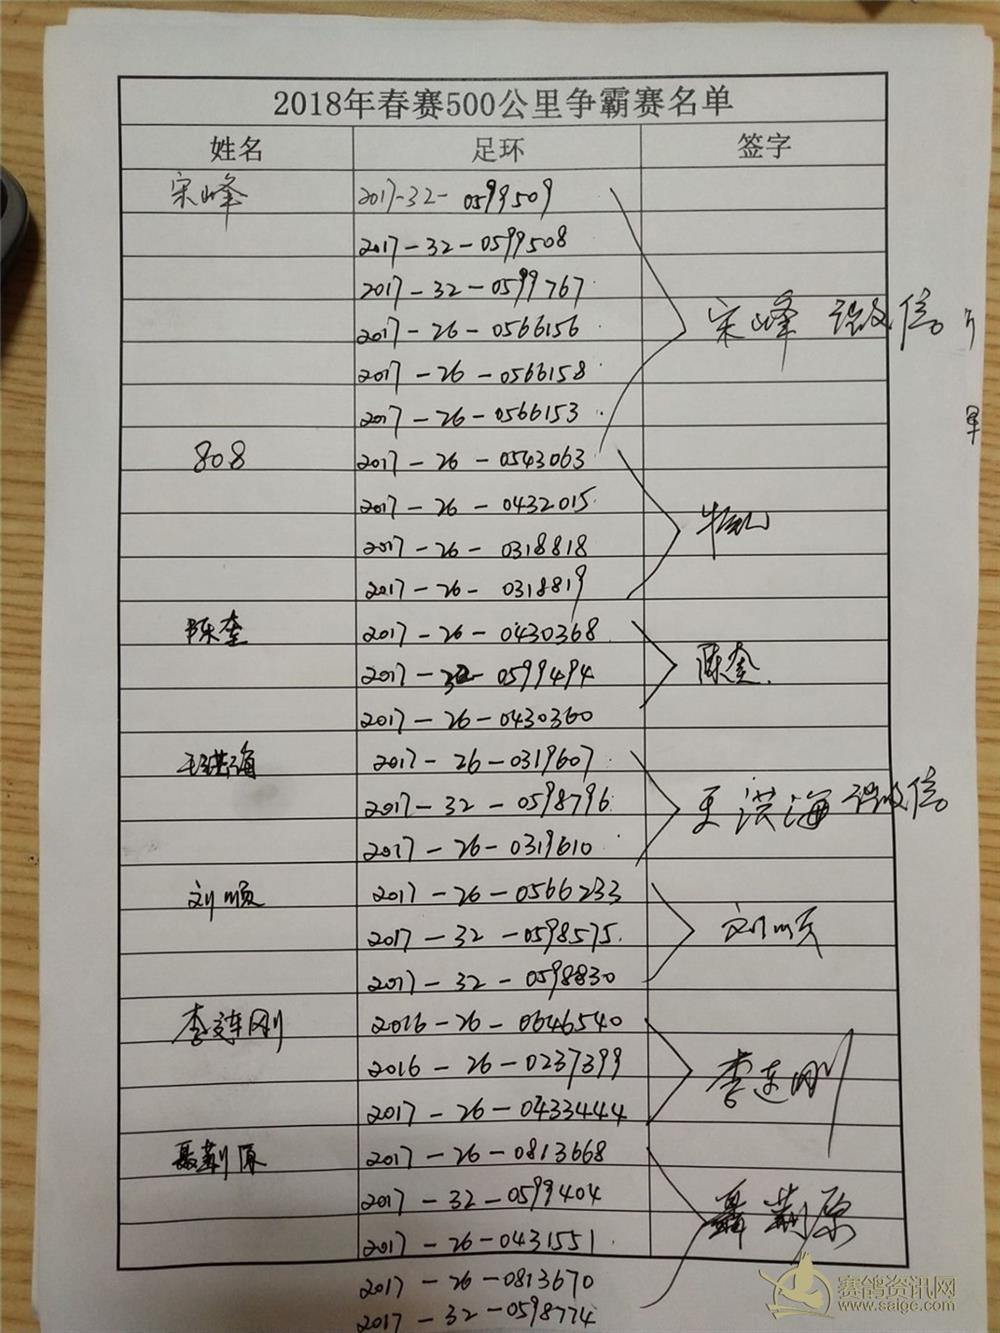 2018年春赛500公里争霸赛名单
姓名 足环 签字
宋峰 2017-32-0599509
2017-32-0599508
2017-32-0599767
2017-26-0566156 宋峰 微信
2017-26-0566158
2017-26-0566153
808 2017-26-0543063
2017-26-0432015
2017-26-0318818
2017-26-0318819
陈奎 2017-26-0430368
2017-32-0599494 陈奎
2017-26-0430360
王洪海 2017-26-0319607
2017-32-0598796 王洪海 微信
2017-26-0319610
刘顺 2017-26-0566233
2017-32-0598575 刘顺
2017-32-0598830
李连刚 2016-26-0646540
2016-26-0237399 李连刚
2017-26-0433444
聂荆原 2017-26-0813668
2017-32-0599404 聂荆原
2017-26-0431551
2017-26-0813670
2017-32-0598774
赛鸽资讯网
www.saigc.com